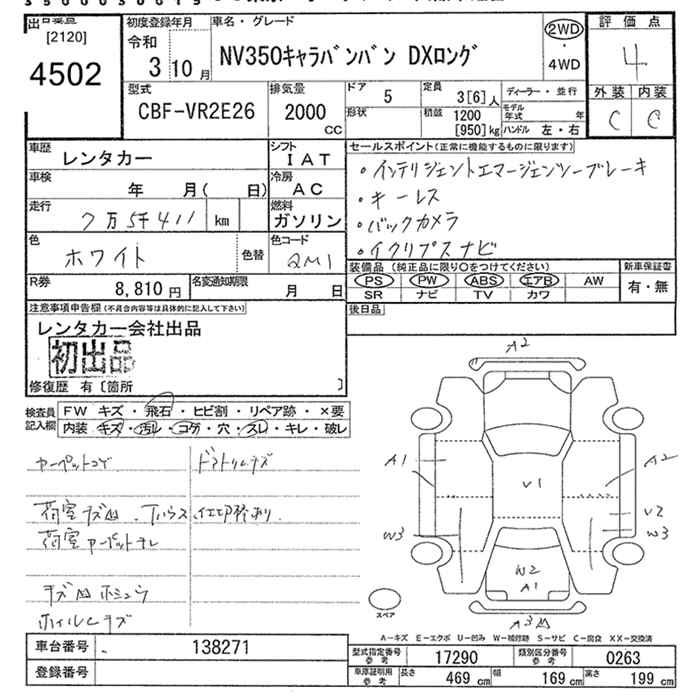 出
[2120]
4502
初度登録年月
令和
3年10月
車名・グレード
NV350キャラバンバン DXロング
2WD
・
4WD
評価点
4
外装 内装
C C
型式
CBF-VR2E26
排気量
2000
CC
ドア
5
形状
定員
3[6]人
積載 1200
[950]kg
ディーラー・並行
モデル年式 年
ハンドル 左・右
車歴
レンタカー
シフト
IAT
車検
年 月( 日)
冷房
AC
走行
7万5千411 km
燃料
ガソリン
色
ホワイト
色替
色コード
QM1
R券
8,810円
名変通知期限
月 日
セールスポイント(正常に機能するものに限ります)
・インテリジェントエマージェンシーブレーキ
・キーレス
・バックカメラ
・イクリプスナビ
装備品(純正品に限り○をつけてください)
PS PW ABS エアB AW
SR ナビ TV カワ
新車保証書
有・無
後日品
注意事項申告欄(不具合内容等は具体的に記入して下さい)
レンタカー会社出品
初出品
修復歴 有〔箇所 〕
検査員記入欄
FW キズ・飛石・ヒビ割・リペア跡・×要
内装 キズ・汚レ・コゲ・穴・スレ・キレ・破レ
カーペットコゲ
ドアトリムキズ
荷室キズ凹
荷室カーペットキレ
キズ凹
ホイルムキズ
A2
A1
A2
V1
V2
W3
W3
W2
A1
A3凹
スペア
A−キズ E−エクボ U−凹み W−補修跡 S−サビ C−腐食 XX−交換済
車台番号
138271
登録番号
型式指定番号
参考
17290
類別区分番号
参考
0263
車庫証明用
参考
長さ
469 cm
幅
169 cm
高さ
199 cm